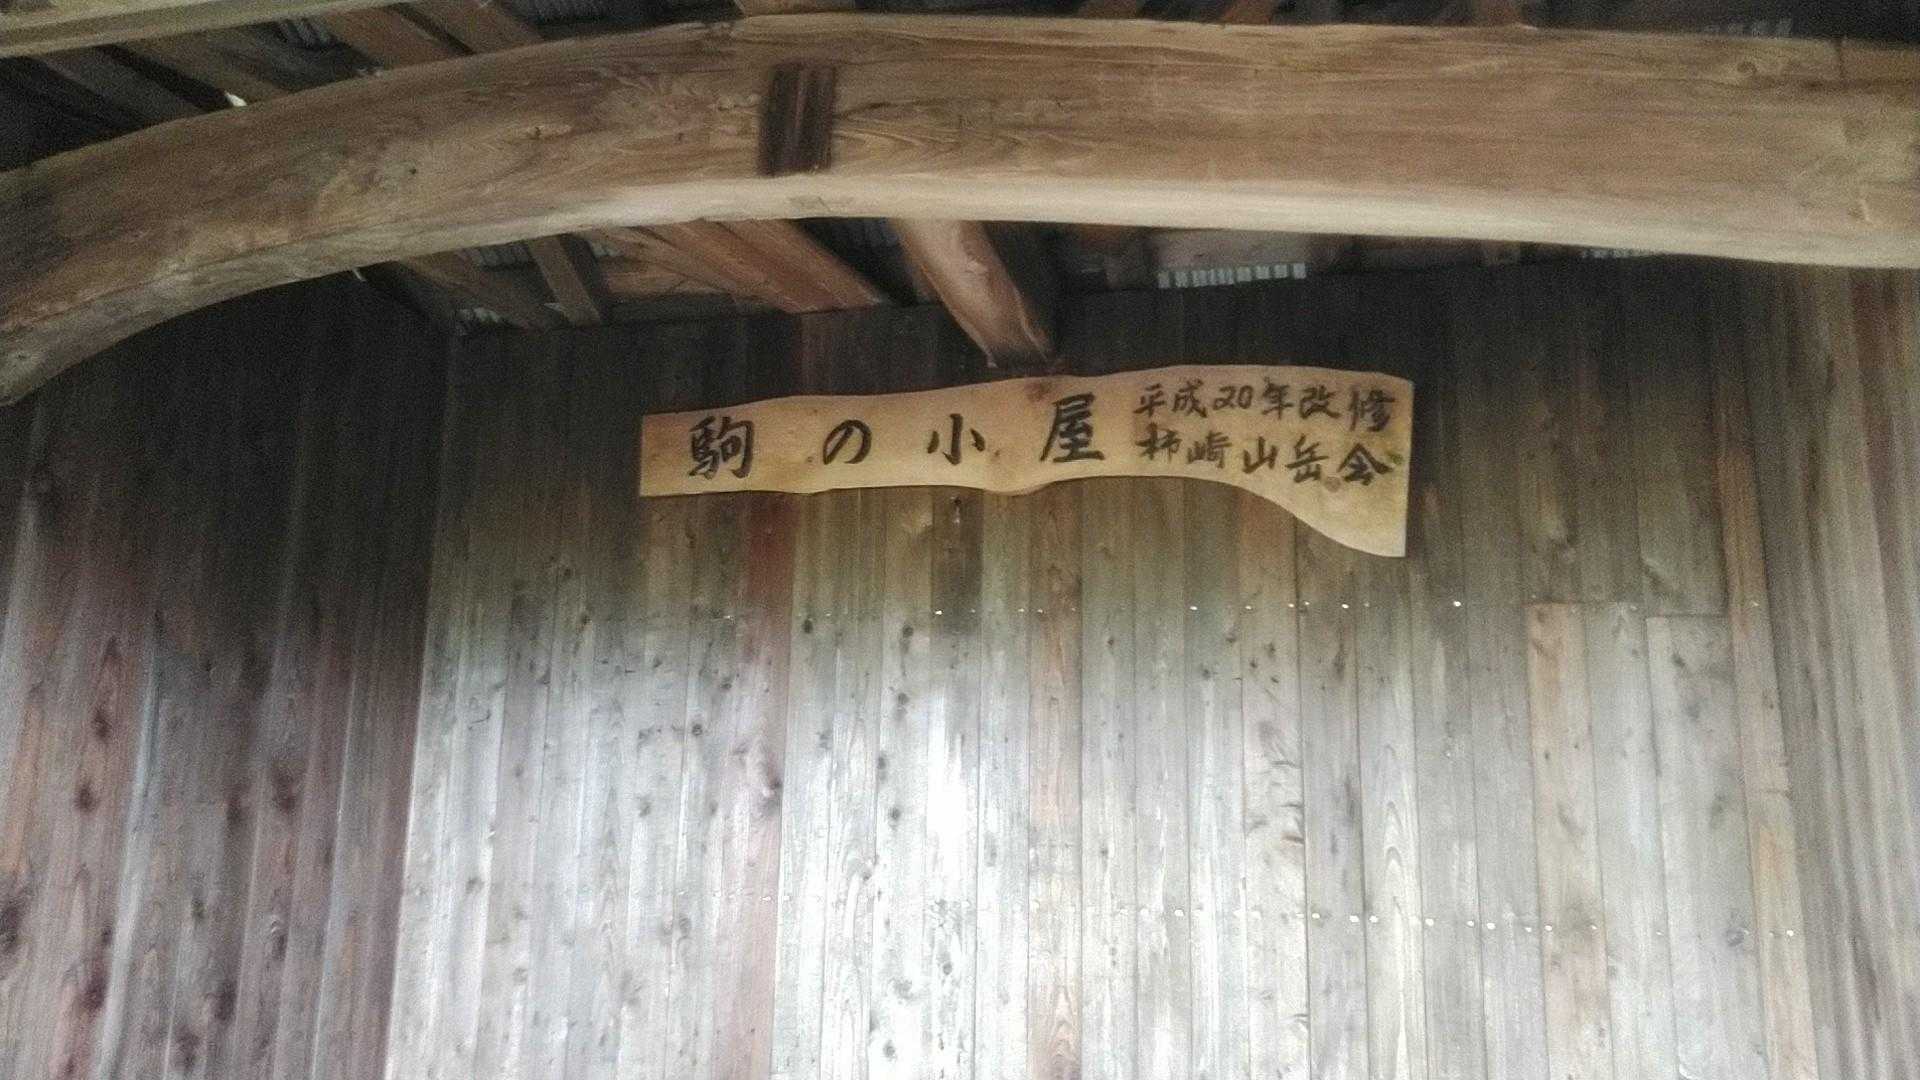 駒の小屋
平成20年改修
柿崎山岳会